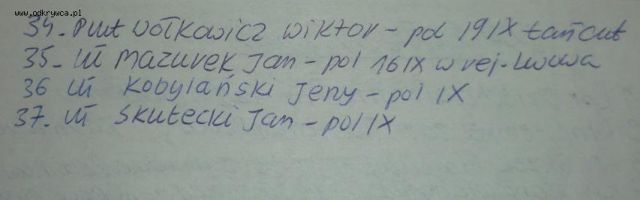 www.odkrywca.pl
34. Ppłt Wołkowicz Wiktor – pol 19 IX Łańcut
35. Mazurek Jan – pol 16 IX w rej. Lwowa
36 Kobylański Jerzy – pol IX
37. Skutecki Jan – pol IX